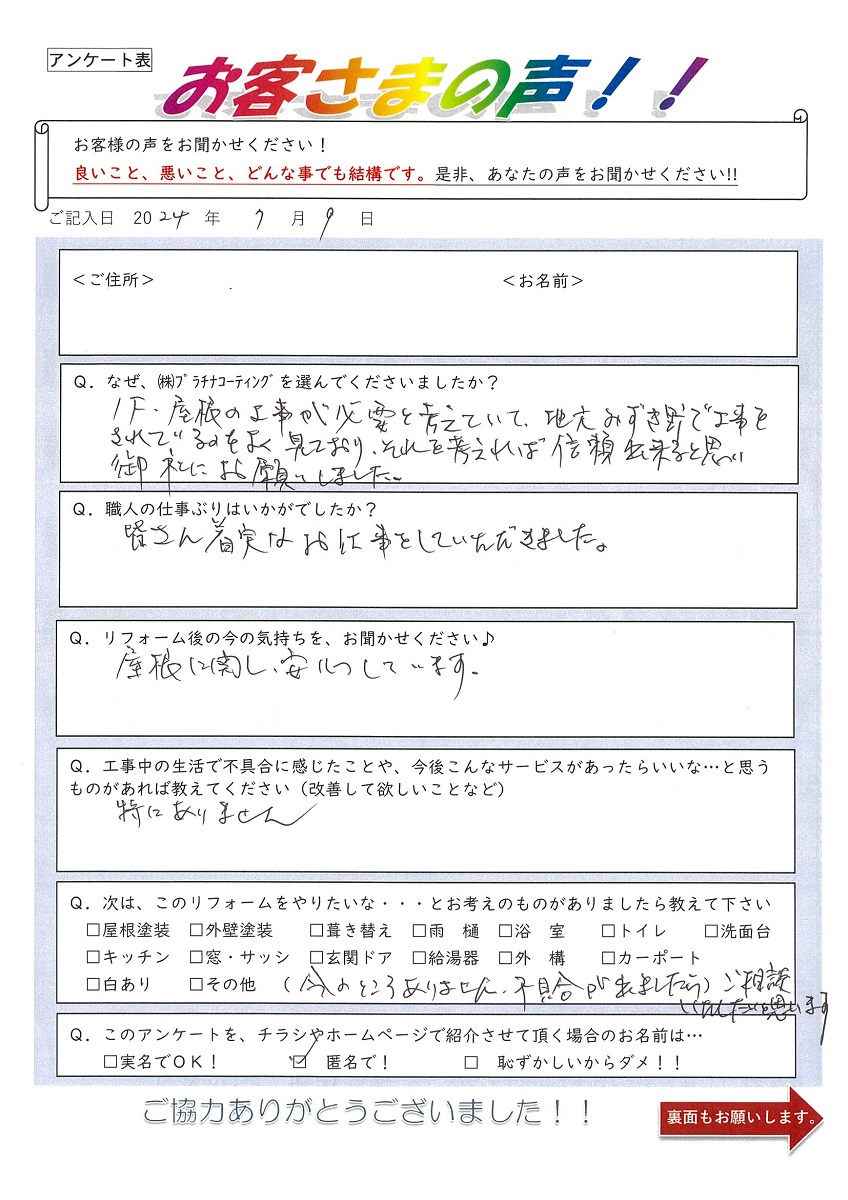 アンケート表
お客さまの声！！
お客様の声をお聞かせください！
良いこと、悪いこと、どんな事でも結構です。是非、あなたの声をお聞かせください!!
ご記入日 2024 年 7 月 9 日
＜ご住所＞ ＜お名前＞
Q．なぜ、㈱ﾌﾟﾗﾁﾅｺｰﾃｨﾝｸﾞを選んでくださいましたか？
1F・屋根の工事が必要と考えていて、地元みずき野で工事を
されているのをよく見ており、それを考えれば信頼出来ると思い
御社にお願いしました。
Q．職人の仕事ぶりはいかがでしたか？
皆さん着実なお仕事をしていただきました。
Q．リフォーム後の今の気持ちを、お聞かせください♪
屋根に関し、安心しています。
Q．工事中の生活で不具合に感じたことや、今後こんなサービスがあったらいいな…と思う
ものがあれば教えてください（改善して欲しいことなど）
特にありません
Q．次は、このリフォームをやりたいな・・・とお考えのものがありましたら教えて下さい
□屋根塗装 □外壁塗装 □葺き替え □雨 樋 □浴 室 □トイレ □洗面台
□キッチン □窓・サッシ □玄関ドア □給湯器 □外 構 □カーポート
□白あり □その他 （今のところありません、不具合が出ましたら）ご相談
いたしたいと思います
Q．このアンケートを、チラシやホームページで紹介させて頂く場合のお名前は…
□実名でＯＫ！ ☑ 匿名で！ □ 恥ずかしいからダメ！！
ご協力ありがとうございました！！
裏面もお願いします。